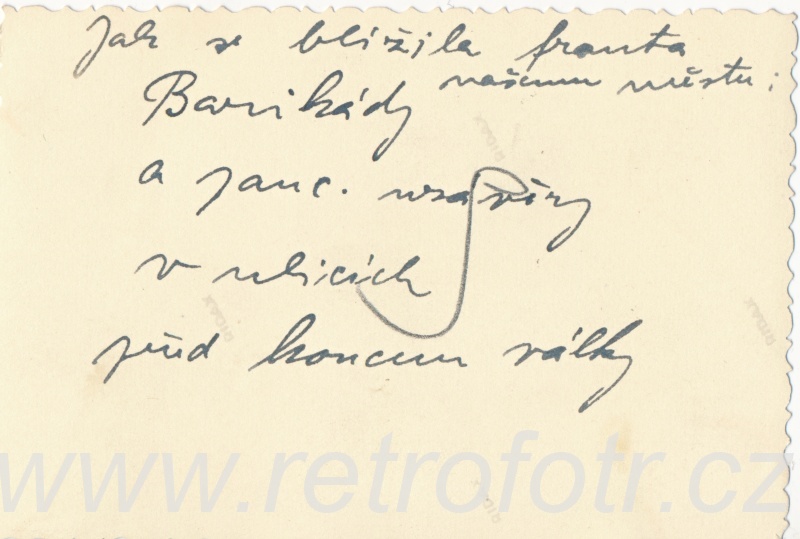 Jak se blížila fronta
našemu městu:
Barikády
a panc. uzávěry
v ulicích
před koncem války
www.retrofotr.cz
RIDAX
RIDAX
RIDAX
RIDAX